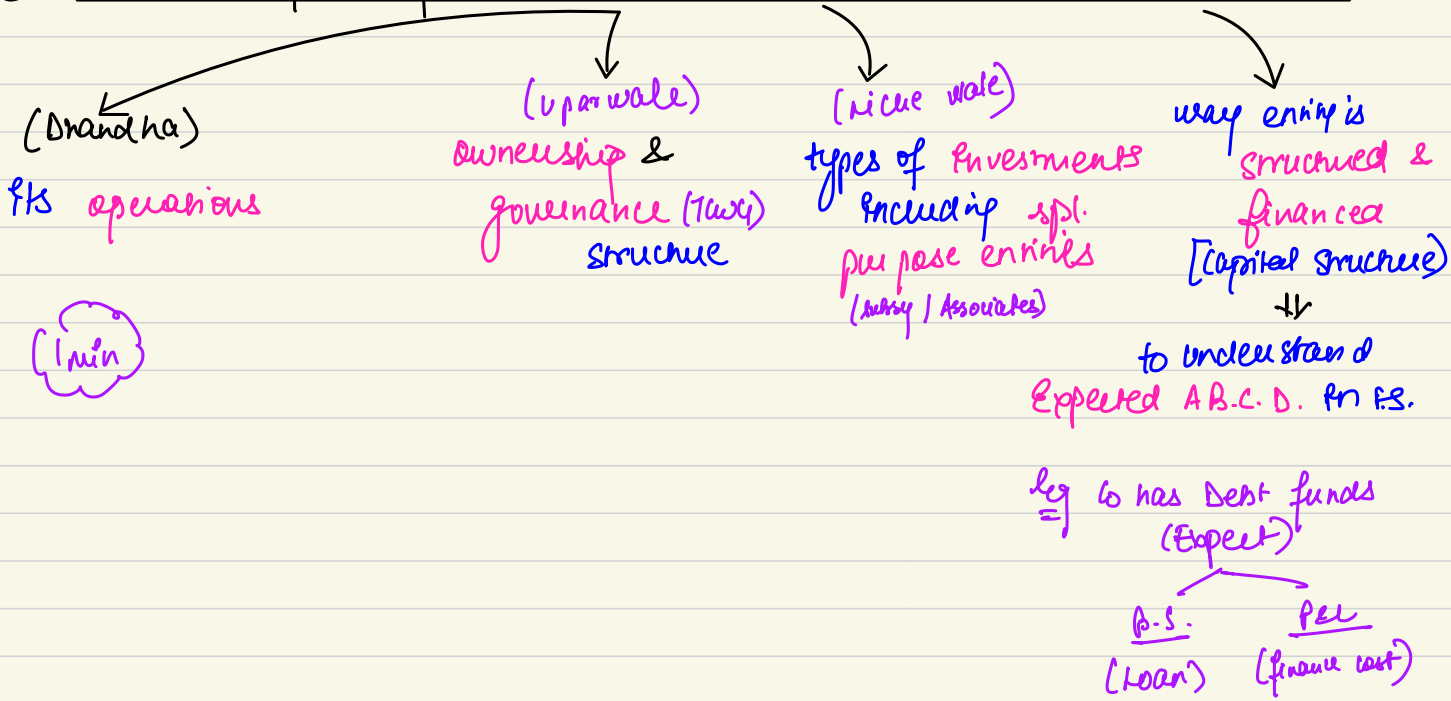 (Dhandha)
its operations
1 min
(Uparwale)
ownership &
governance (TCWG)
structure
(Niche wale)
types of investments
including spl.
purpose entities
(subsy / Associates)
way entity is
structured &
financed
[Capital structure)
to understand
Expected A.B.C.D. in F.S.
eg Co has Debt funds
(Expect)
B.S.
(Loan)
P&L
(finance cost)